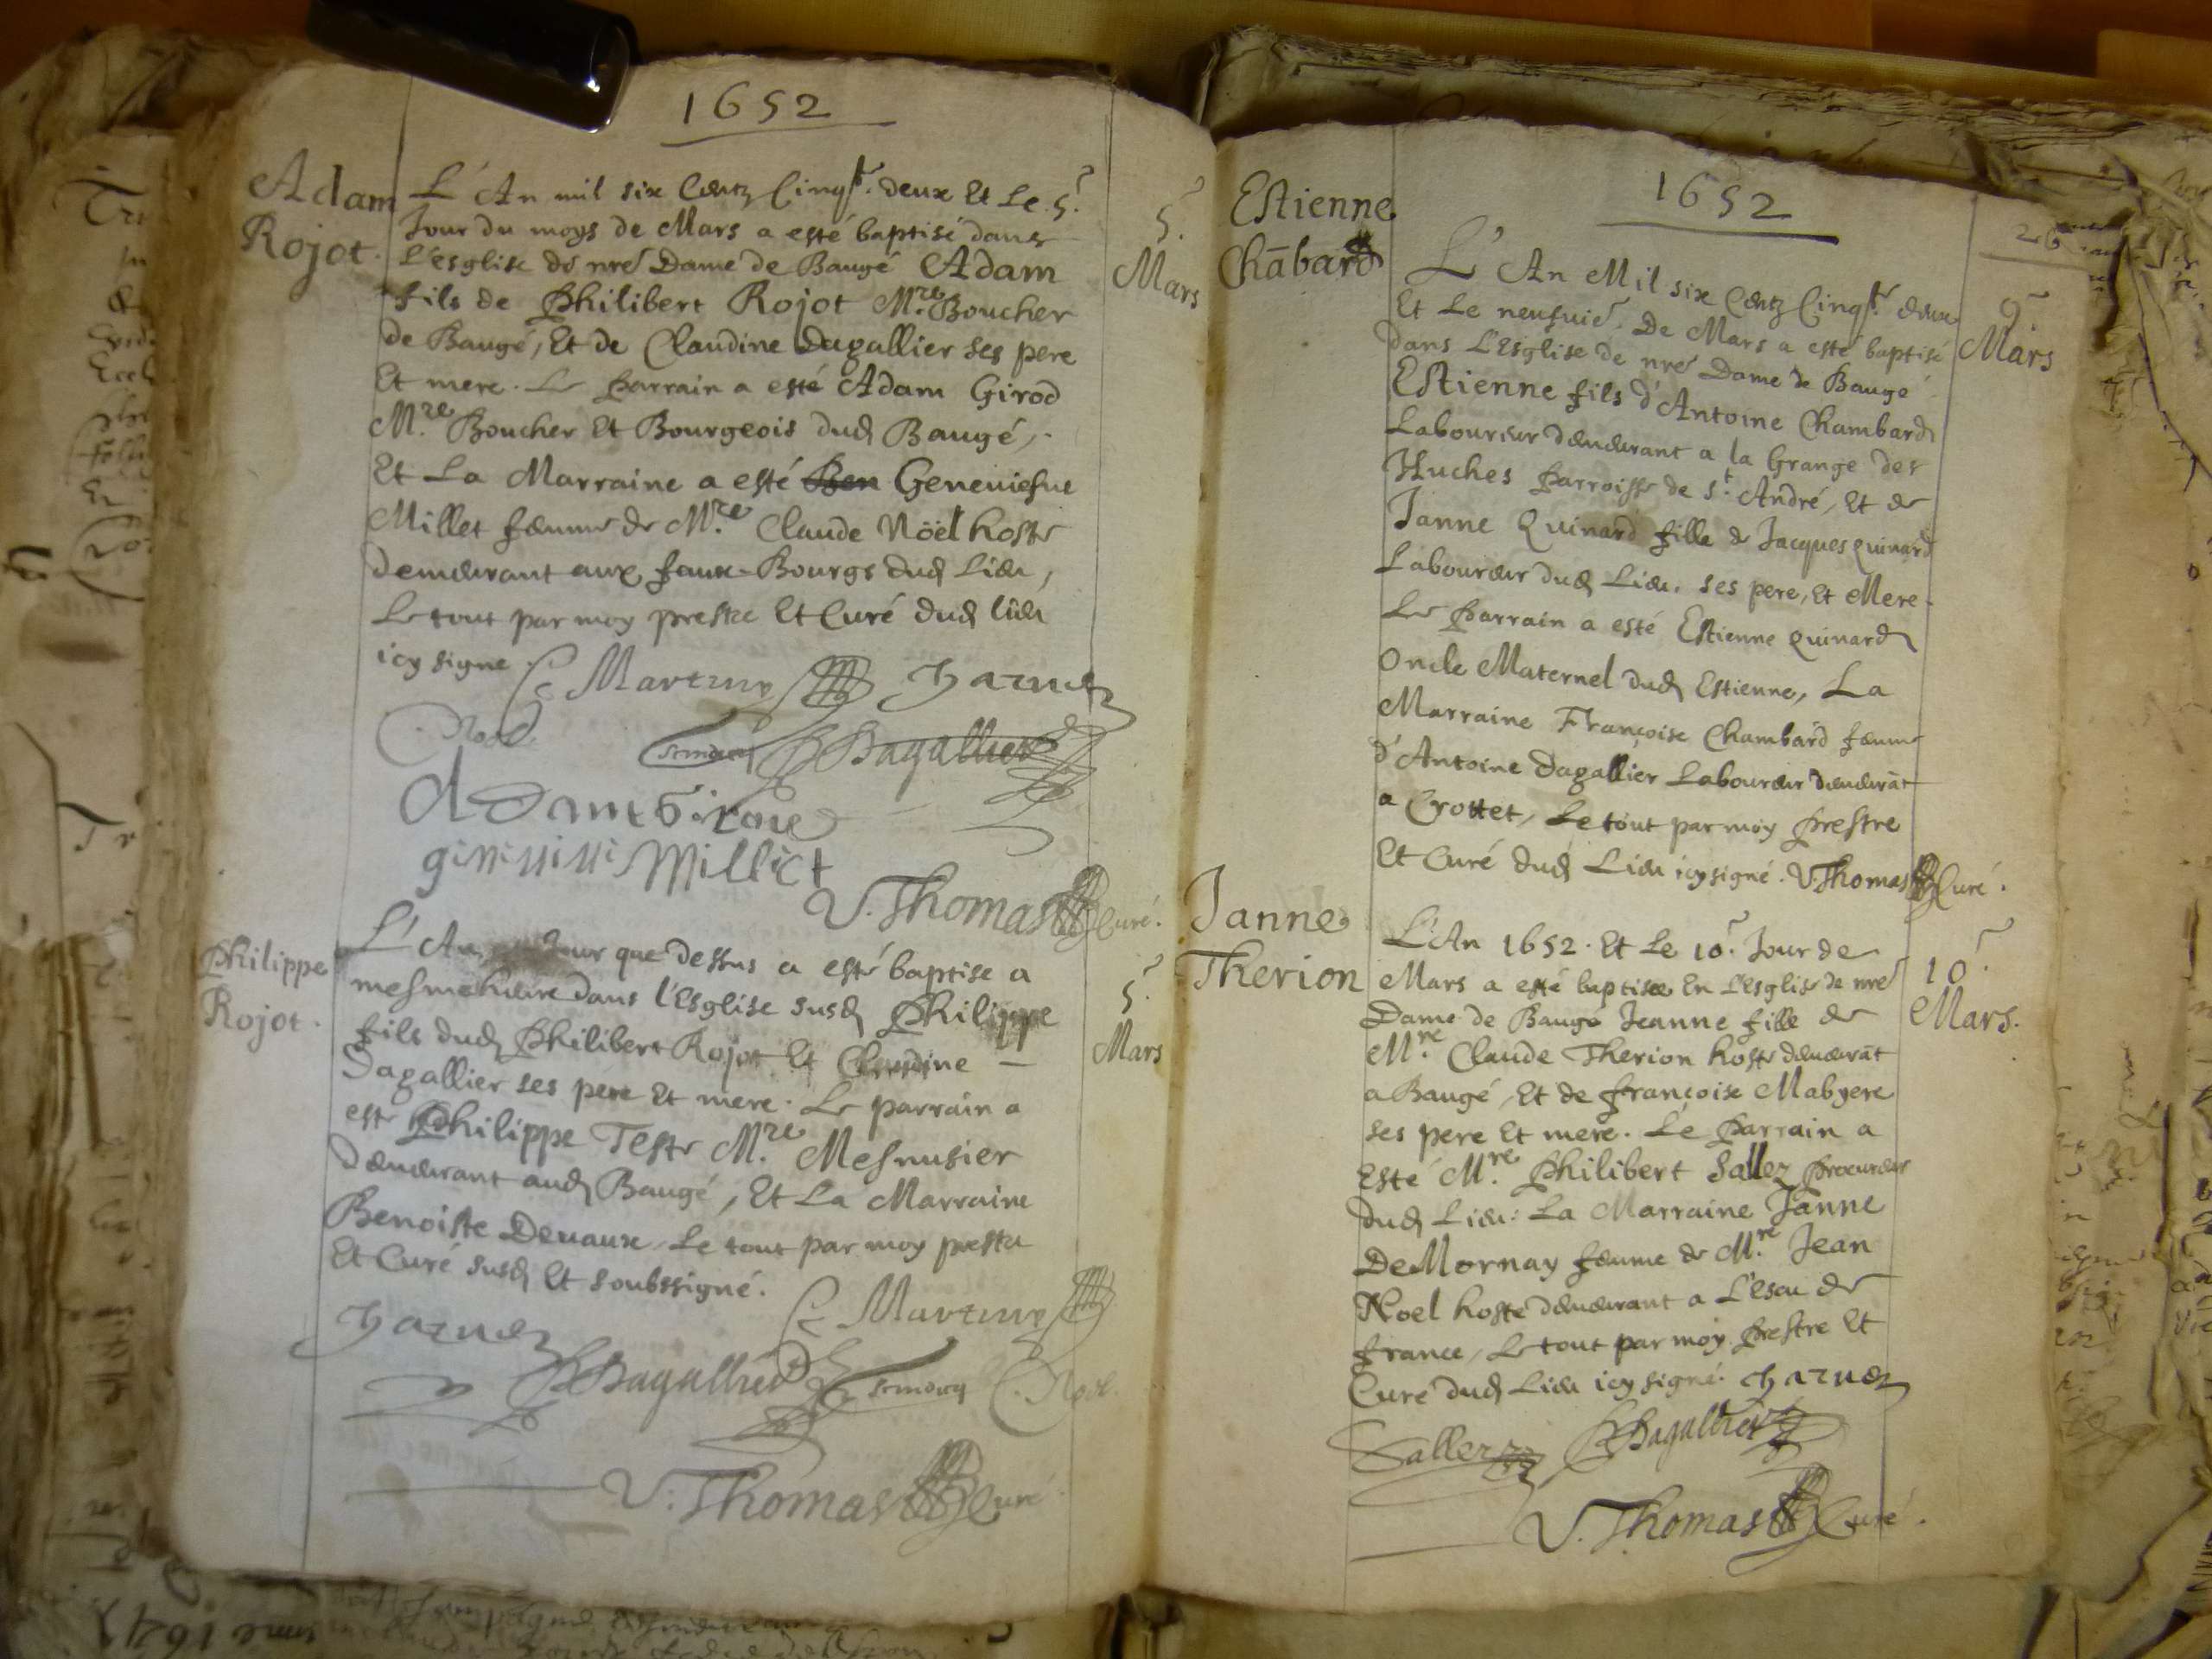 1652
Adam
Rojot.
L'An mil six Centz Cinqt. deux Et Le 5e.
Jour du moys de Mars a esté baptisé dans
L'esglise de nre Dame de Baugé Adam
fils de Philibert Rojot Mre. Boucher
de Baugé, Et de Claudine Dagallier ses pere
Et mere. Le Parrain a esté Adam Girod
Mre. Boucher Et Bourgeois dud Baugé,
Et La Marraine a esté Ben Geneuiefue
Millet femme de Mre. Claude Nöel hoste
demeurant aux faux-Bourgs dud Lieu,
Le tout par moy prestre Et Curé dud lieu
icy signe
5e.
Mars
C Martine Harnet
Noel Dagallier
Adam Giroud
Millict
V. Thomas Curé.
Philippe
Rojot.
L'An Jour que dessus a esté baptise a
mesme heure dans l'Esglise susd Philippe
fils dud Philibert Rojot Et Claudine —
Dagallier ses pere Et mere. Le parrain a
este Philippe Teste Mre. Mesnusier
demeurant aud Baugé, Et La Marraine
Benoiste Deuaux. Le tout par moy prestre
Et Curé susd Et soubssigné.
5e.
Mars
Harnet C Martine
Dagallier Noel.
V. Thomas Curé.
1652
26
Estienne
Chābard
L'An Mil six Centz Cinqt. deux
Et Le neufuie. De Mars a esté baptisé
dans L'Esglise de nre Dame de Baugé
Estienne fils d'Antoine Chambard
Laboureur demeurant a la Grange des
Huches Parroisse de St. André, Et de
Janne Quinard fille de Jacques quinard
Laboureur dud Lieu. ses pere, Et Mere.
Le Parrain a esté Estienne quinard
Oncle Maternel dud Estienne, La
Marraine Françoise Chambard femme
d'Antoine Dagallier Laboureur demeurāt
a Crottet, Le tout par moy Prestre
Et Curé dud Lieu icy signé. V. Thomas Curé.
9e.
Mars
Janne
Therion
L'An 1652. Et Le 10e. Jour de
Mars a esté baptisée En L'Esglise de nre
Dame de Baugé Jeanne fille de
Mre. Claude Therion hoste demeurāt
a Baugé, Et de françoise Mabyere
ses pere Et mere. Le Parrain a
Esté Mre. Philibert Sallez Procureur
dud Lieu: La Marraine Janne
DeMornay femme de Mre. Jean
Noel hoste demeurant a L'Escu de
france, Le tout par moy Prestre Et
Curé dud Lieu icy signé. Harnet
10e.
Mars.
Sallez Dagallier
V. Thomas Curé.